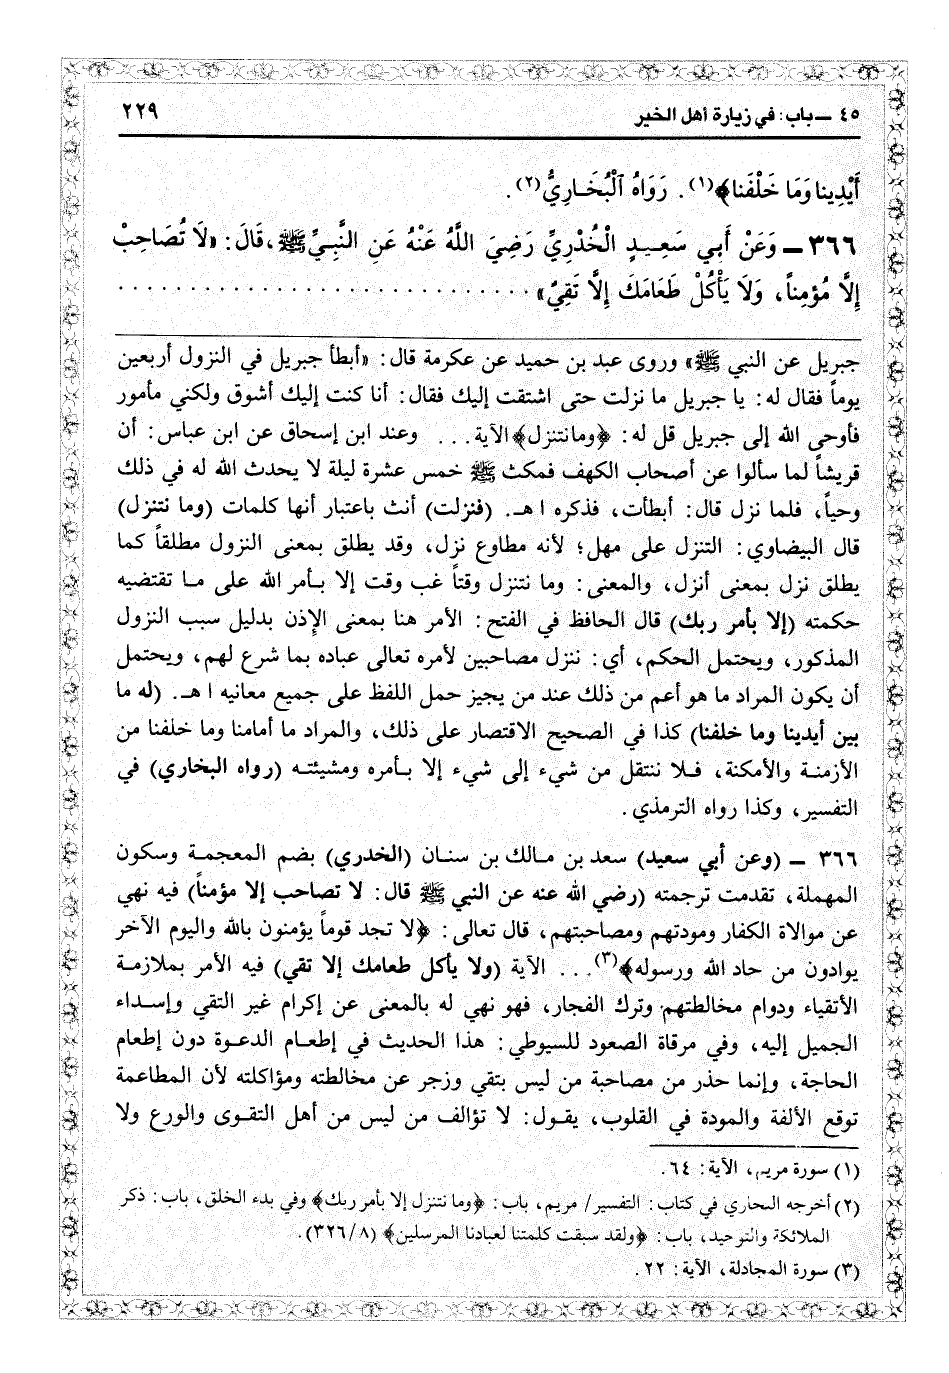 ٤٥ ـ باب: في زيارة أهل الخير ٢٢٩
أَيْدِينا وَمَا خَلْفَنا﴾(١). رَوَاهُ ٱلْبُخَارِيُّ(٢).
٣٦٦ ـ وَعَنْ أَبي سَعِيدٍ الْخُدْرِيِّ رَضِيَ اللَّهُ عَنْهُ عَنِ النَّبِيِّ ﷺ، قَالَ: «لَا تُصَاحِبْ
إِلَّا مُؤْمِناً، وَلَا يَأْكُلْ طَعَامَكَ إِلَّا تَقِيٌّ» . . . . . . . . . . . . . . . . . . . . . . . . . . . . . .
جبريل عن النبي ﷺ» وروى عبد بن حميد عن عكرمة قال: «أبطأ جبريل في النزول أربعين
يوماً فقال له: يا جبريل ما نزلت حتى اشتقت إليك فقال: أنا كنت إليك أشوق ولكني مأمور
فأوحى الله إلى جبريل قل له: ﴿وما نتنزل﴾ الآية. . . وعند ابن إسحاق عن ابن عباس: أن
قريشاً لما سألوا عن أصحاب الكهف فمكث ﷺ خمس عشرة ليلة لا يحدث الله له في ذلك
وحياً، فلما نزل قال: أبطأت، فذكره ا هـ. (فنزلت) أنث باعتبار أنها كلمات (وما نتنزل)
قال البيضاوي: التنزل على مهل؛ لأنه مطاوع نزل، وقد يطلق بمعنى النزول مطلقاً كما
يطلق نزل بمعنى أنزل، والمعنى: وما نتنزل وقتاً غب وقت إلا بـأمر الله على مـا تقتضيه
حكمته (إلا بأمر ربك) قال الحافظ في الفتح: الأمر هنا بمعنى الإذن بدليل سبب النزول
المذكور، ويحتمل الحكم، أي: ننزل مصاحبين لأمره تعالى عباده بما شرع لهم، ويحتمل
أن يكون المراد ما هو أعم من ذلك عند من يجيز حمل اللفظ على جميع معانيه ا هـ. (له ما
بين أيدينا وما خلفنا) كذا في الصحيح الاقتصار على ذلك، والمراد ما أمامنا وما خلفنا من
الأزمنـة والأمكنة، فـلا ننتقل من شيء إلى شيء إلا بـأمره ومشيئتـه (رواه البخاري) في
التفسير، وكذا رواه الترمذي.
٣٦٦ ـ (وعن أبي سعيد) سعد بن مـالك بن سنـان (الخدري) بضم المعجمـة وسكون
المهملة، تقدمت ترجمته (رضي الله عنه عن النبي ﷺ قال: لا تصاحب إلا مؤمناً) فيه نهي
عن موالاة الكفار ومودتهم ومصاحبتهم، قال تعالى: ﴿لا تجد قوماً يؤمنون بالله واليوم الآخر
يوادون من حاد الله ورسوله﴾(٣). . . الآية (ولا يأكل طعامك إلا تقي) فيه الأمر بملازمـة
الأتقياء ودوام مخالطتهم وترك الفجار، فهو نهي له بالمعنى عن إكرام غير التقي وإسـداء
الجميل إليه، وفي مرقاة الصعود للسيوطي: هذا الحديث في إطعـام الدعـوة دون إطعام
الحاجة، وإنما حذر من مصاحبة من ليس بتقي وزجر عن مخالطته ومؤاكلته لأن المطاعمة
توقع الألفة والمودة في القلوب، يقـول: لا تؤالف من ليس من أهل التقوى والورع ولا
(١) سورة مريم، الآية: ٦٤.
(٢) أخرجه البخاري في كتاب: التفسير/ مريم، باب: ﴿وما نتنزل إلا بأمر ربك﴾ وفي بدء الخلق، باب: ذكر
الملائكة والتوحيد، باب: ﴿ولقد سبقت كلمتنا لعبادنا المرسلين﴾ (٣٢٦/٨).
(٣) سورة المجادلة، الآية: ٢٢.